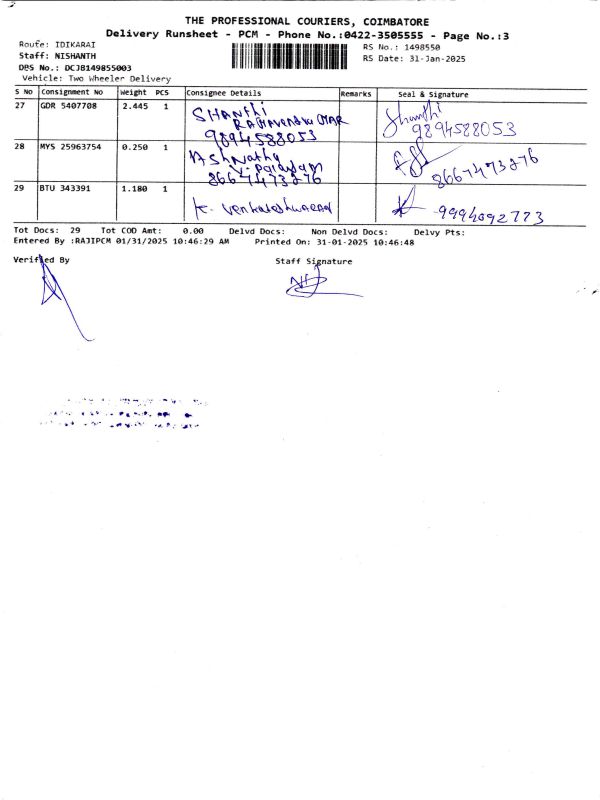 THE PROFESSIONAL COURIERS, COIMBATORE
Delivery Runsheet - PCM - Phone No.:0422-3505555 - Page No.:3
Route: IDIKARAI
RS No.: 1498550
Staff: NISHANTH
RS Date: 31-Jan-2025
DRS No.: DCJ8149855003
Vehicle: Two Wheeler Delivery
S No Consignment No Weight PCS Consignee Details Remarks Seal & Signature
27 GDR 5407708 2.445 1 SHANthi Shanthi
9894588053 9894588053
28 MYS 25963754 0.250 1
8667473276 8667473276
29 BTU 343391 1.180 1 K. Venkateshwaran 9994092773
Tot Docs: 29 Tot COD Amt: 0.00 Delvd Docs: Non Delvd Docs: Delvy Pts:
Entered By :RAJIPCM 01/31/2025 10:46:29 AM Printed On: 31-01-2025 10:46:48
Verified By Staff Signature